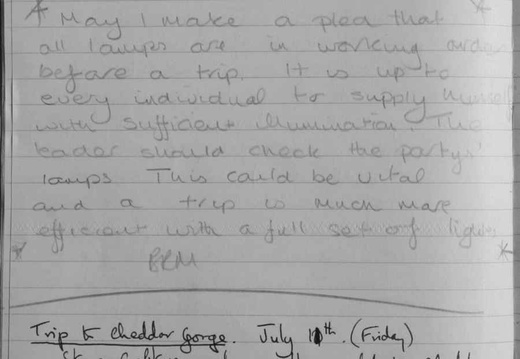 May I make a plea that
all lamps are in working order
before a trip. It is up to
every individual to supply himself
with sufficient illumination. The
leader should check the partys'
lamps This could be vital
and a trip is much more
efficient with a full set of lights
BRM
Trip to Cheddar Gorge. July 11th. (Friday)